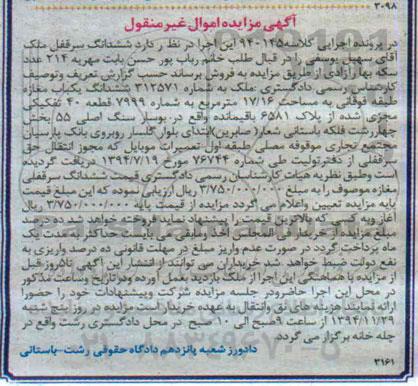 ۳۰۹۸
آگهی مزایده اموال غیر منقول
در پرونده اجرایی کلاسه ۱۴۵-۹۴۰ این اجرا در نظر دارد ششدانگ سرقفلی ملک
آقای سهیل یوسفی را در قبال طلب خانم رباب پور حسن بابت مهریه ۲۱۴ عدد
سکه بهار آزادی از طریق مزایده به فروش برساند حسب گزارش تعریف وتوصیف
کارشناس رسمی دادگستری: ملک به شماره ۳۱۲۵۷۱ ششدانگ یکباب مغازه
طبقه فوقانی به مساحت ۱۷/۱۶ مترمربع به شماره ۷۹۹۹ قطعه ۴۰ تفکیکی
مجزی شده از پلاک ۶۵۸۱ باقیمانده واقع در بوسار سنگ اصلی ۵۵ بخش
چهار رشت فلکه باستانی شعار( صابرین)ابتدای بلوار گلسار روبروی بانک پارسیان
مجتمع تجاری موقوفه مصلی طبقه اول تعمیرات موبایل که مجوز انتقال حق
سرقفلی از دفتر تولیت طی شماره ۷۶۷۴۴ مورخ ۱۳۹۴/۷/۱۹ دریافت گردیده
است وطبق نظریه هیات کارشناسان رسمی دادگستری قیمت ششدانگ سرقفلی
مغازه موصوف را به مبلغ ۳/۷۵۰/۰۰۰/۰۰۰ ریال ارزیابی نموده که این مبلغ قیمت
پایه مزایده تعیین واعلام می گردد مزایده از قیمت پایه ۳/۷۵۰/۰۰۰/۰۰۰ ریال
آغاز وبه کسی که بالاترین قیمت را پیشنهاد نماید فروخته خواهد شد ده درصد
مبلغ مزایده از برنده بعنوان فی المجلس اخذ و مابقی می بایست حداکثر به مدت یک
ماه پرداخت گردد در صورت عدم واریز مبلغ در مهلت قانونی ده درصد واریزی به
نفع دولت ضبط خواهد .شد خریداران می توانند از انتشار این آگهی تا ۵روز قبل
از مزایده با هماهنگی این اجرا از ملک بازدید بعمل آورده ودر تاریخ وساعت مذکور
در محل این اجرا حاضرودر جلسه مزایده شرکت وپیشنهادات خود را حضورا
ارائه نمایند هزینه های نق وانتقال به عهده خریدار است مزایده در روز پنج شنبه
۱۳۹۴/۱۱/۲۹ از ساعت ۹صبح الی ۱۰ صبح در محل دادگستری رشت واقع در
چله خانه برگزار می گردد
دادورز شعبه پانزدهم دادگاه حقوقی رشت-باستانی
۳۱۶۱